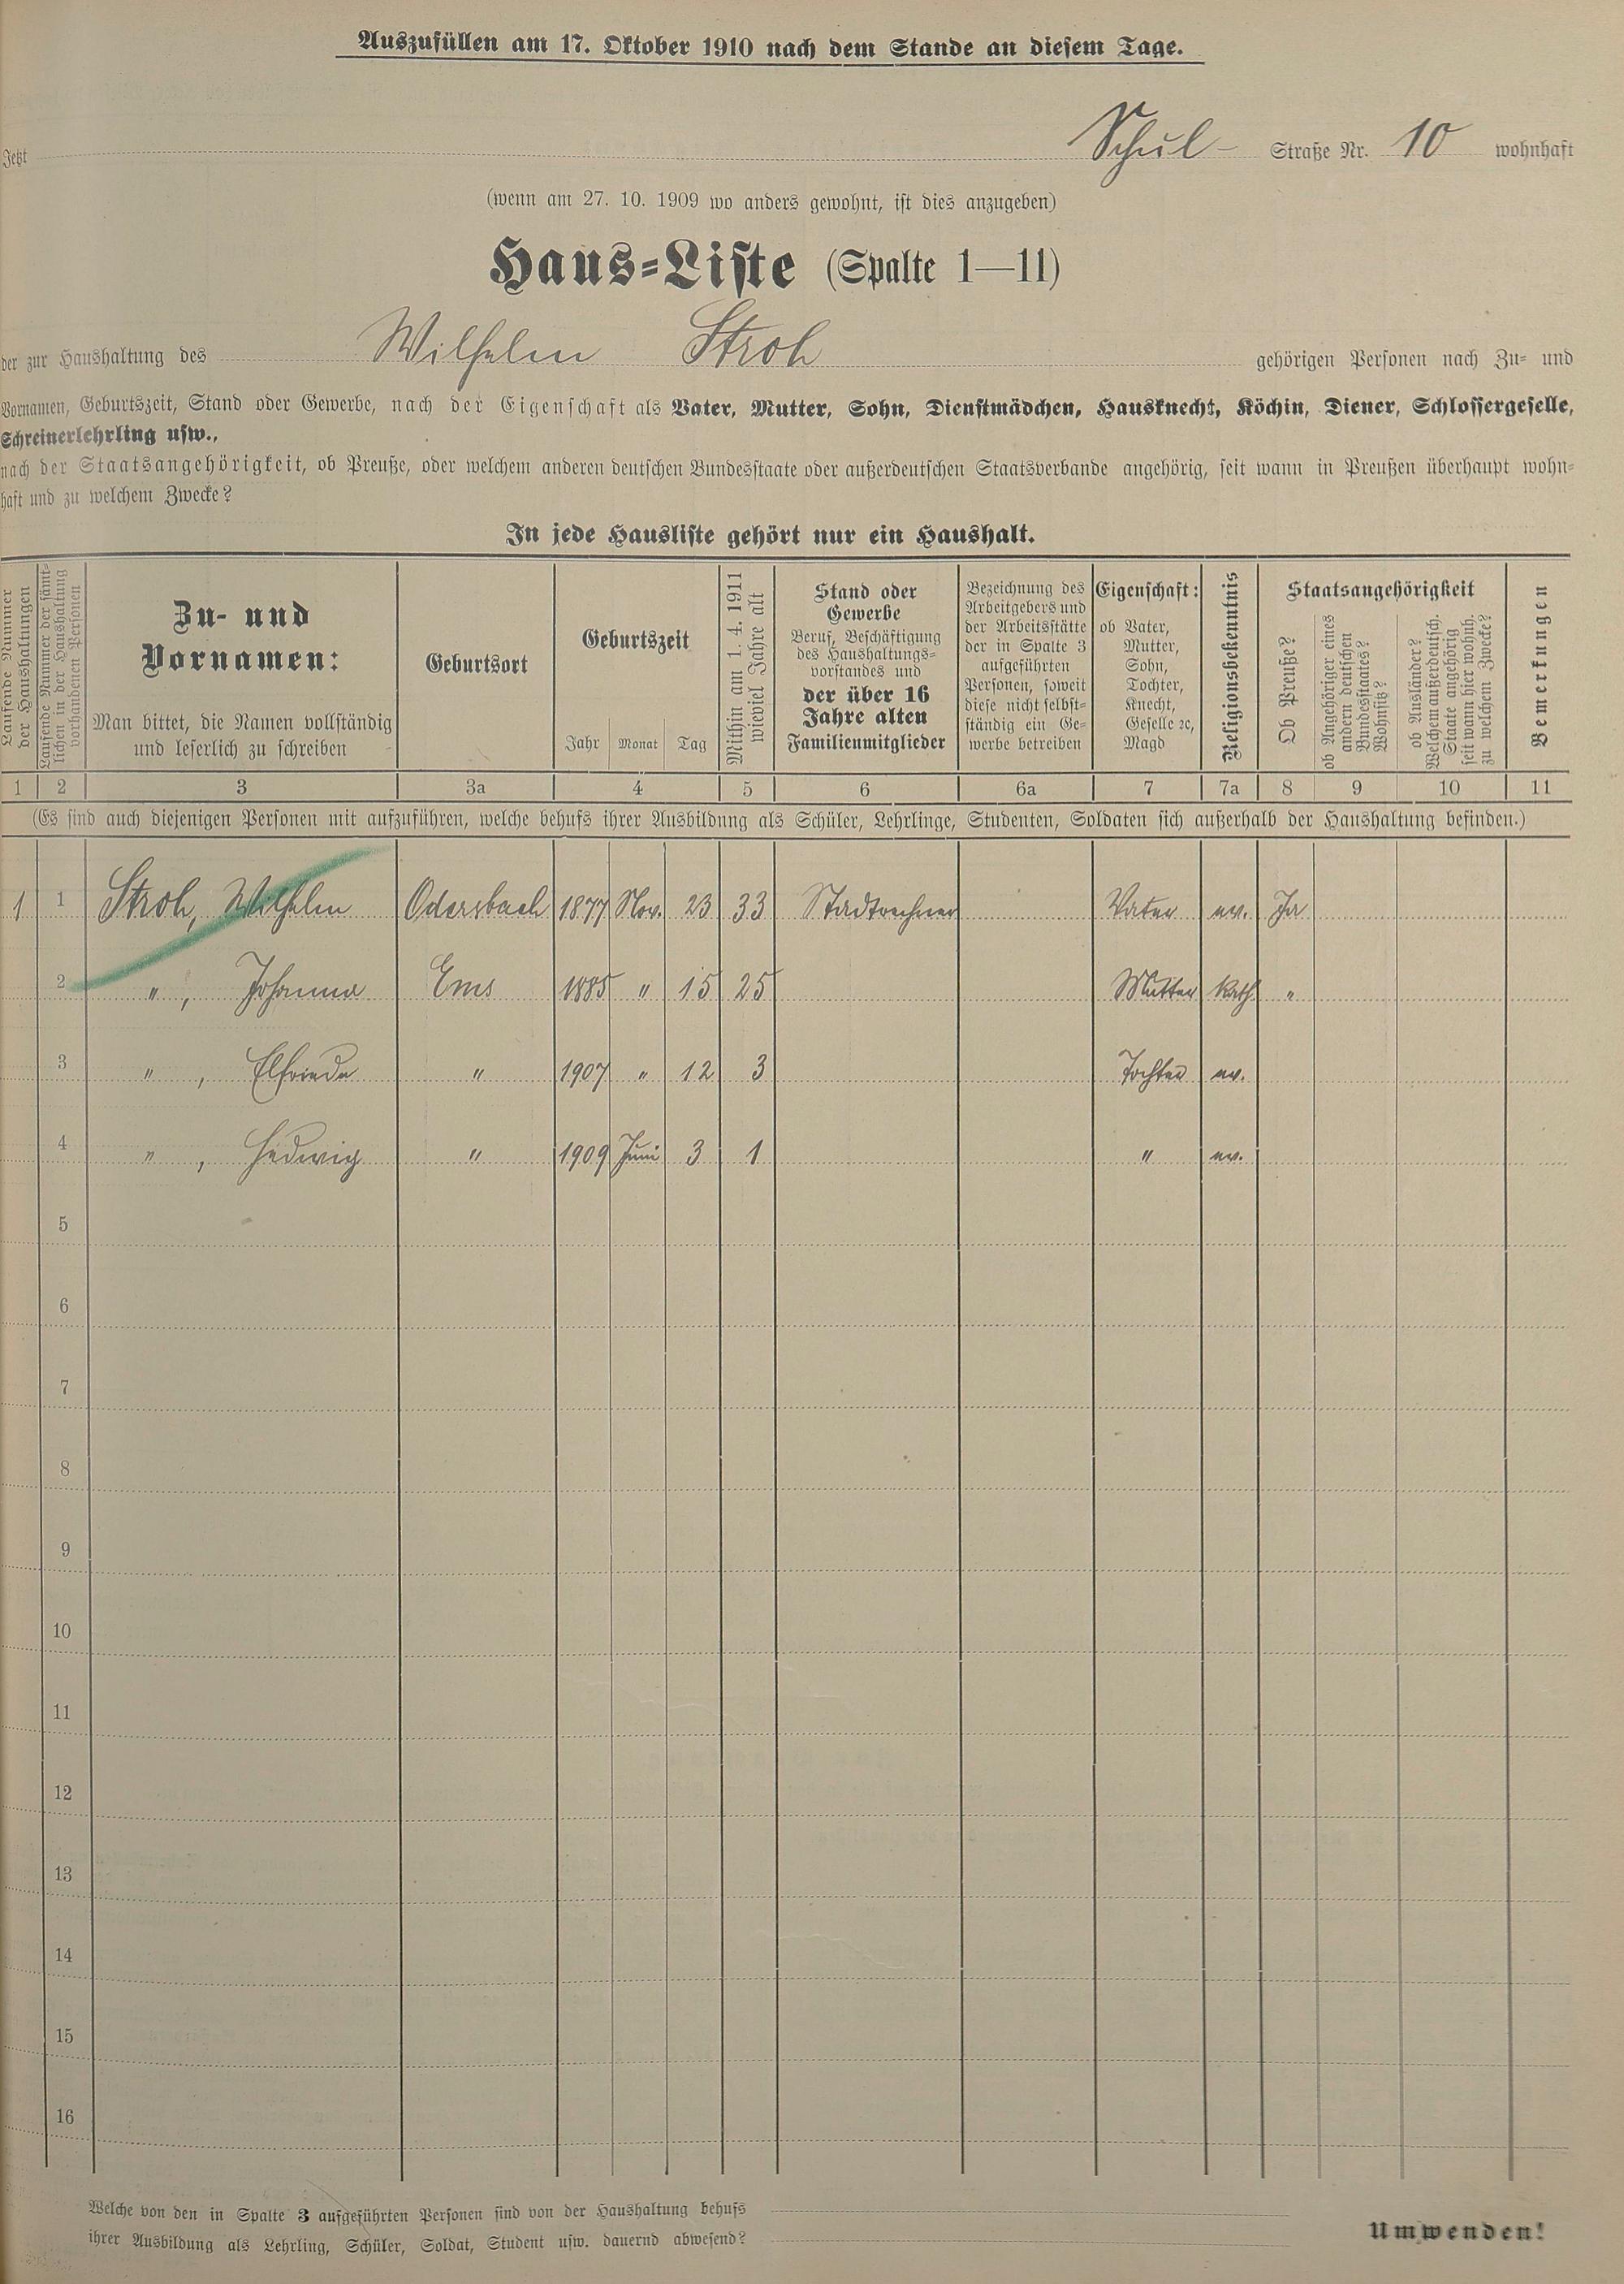 Auszufüllen am 17. Oktober 1910 nach dem Stande an diesem Tage.
Jetzt Schul- Straße Nr. 10 wohnhaft
(wenn am 27. 10. 1909 wo anders gewohnt, ist dies anzugeben)
Haus-Liste (Spalte 1—11)
der zur Haushaltung des Wilhelm Stroh gehörigen Personen nach Zu- und
Vornamen, Geburtszeit, Stand oder Gewerbe, nach der Eigenschaft als Vater, Mutter, Sohn, Dienstmädchen, Hausknecht, Köchin, Diener, Schlossergeselle,
Schreinerlehrling usw.,
nach der Staatsangehörigkeit, ob Preuße, oder welchem anderen deutschen Bundesstaate oder außerdeutschen Staatsverbande angehörig, seit wann in Preußen überhaupt wohn-
haft und zu welchem Zwecke?
In jede Hausliste gehört nur ein Haushalt.
Laufende Nummer
der Haushaltungen
Laufende Nummer der sämt-
lichen in der Haushaltung
vorhandenen Personen
Zu- und
Vornamen:
Man bittet, die Namen vollständig
und leserlich zu schreiben
Geburtsort
Geburtszeit
Jahr Monat Tag
Mithin am 1. 4. 1911
wieviel Jahre alt
Stand oder
Gewerbe
Beruf, Beschäftigung
des Haushaltungs-
vorstandes und
der über 16
Jahre alten
Familienmitglieder
Bezeichnung des
Arbeitgebers und
der Arbeitsstätte
der in Spalte 3
aufgeführten
Personen, soweit
diese nicht selbst-
ständig ein Ge-
werbe betreiben
Eigenschaft:
ob Vater,
Mutter,
Sohn,
Tochter,
Knecht,
Geselle ꝛc,
Magd
Religionsbekenntnis
Staatsangehörigkeit
Ob Preuße?
ob Angehöriger eines
andern deutschen
Bundesstaates?
Wohnsitz?
ob Ausländer?
Welchem außerdeutsch.
Staate angehörig
seit wann hier wohnh.
zu welchem Zwecke?
Bemerkungen
1 2 3 3a 4 5 6 6a 7 7a 8 9 10 11
(Es sind auch diejenigen Personen mit aufzuführen, welche behufs ihrer Ausbildung als Schüler, Lehrlinge, Studenten, Soldaten sich außerhalb der Haushaltung befinden.)
1 1 Stroh, Wilhelm Odersbach 1877 Nov. 23 33 Stadtrechner Vater ev. Ja
2 " , Johanna Ems 1885 " 15 25 Mutter kath. "
3 " , Elfriede " 1907 " 12 3 Tochter ev.
4 " , Hedwig " 1909 Juni 3 1 " ev.
5
6
7
8
9
10
11
12
13
14
15
16
Welche von den in Spalte 3 aufgeführten Personen sind von der Haushaltung behufs
ihrer Ausbildung als Lehrling, Schüler, Soldat, Student usw. dauernd abwesend?
Umwenden!